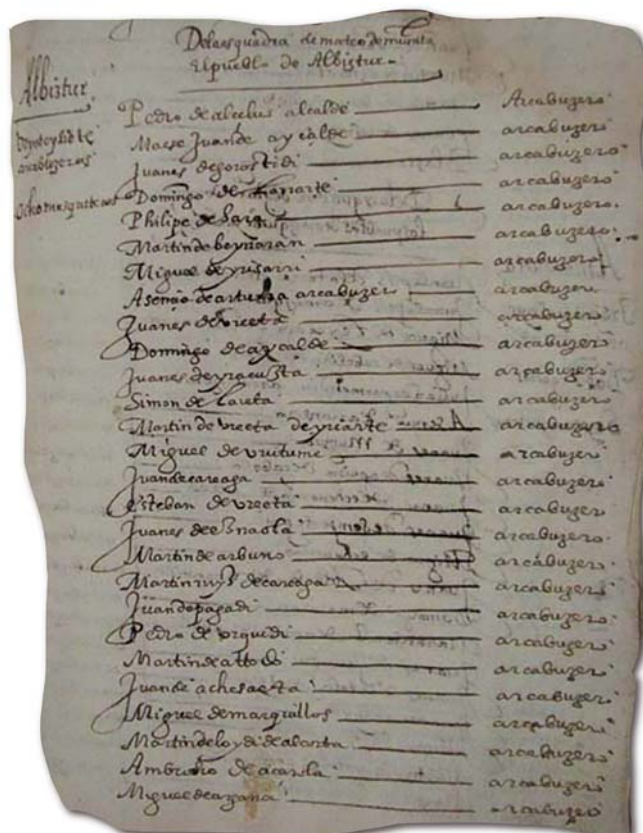 De la esquadra de mateo de murata
el pueblo de Albiztur
Albiztur
Veyntey siete
arcabuzeros
ocho mosqueteros
Pedro de alcelus alcalde Arcabuzero
Maese Juan de aycalde arcabuzero
Juanes de gorostidi arcabuzero
Domingo de arcabuzero
Philipe de arcabuzero
Martin de beynaran arcabuzero
Miguel de yrisarri arcabuzero
Asençio de artunça arcabuzero arcabuzero
Juanes de vreeta arcabuzero
Domingo de aycalde arcabuzero
Juanes de yraeusta arcabuzero
Simon de llareta arcabuzero
Martin de vreeta de yriarte arcabuzero
Miguel de vuitume arcabuzero
Juan de careaga arcabuzero
esteban de vreeta arcabuzero
Juanes de esnaola arcabuzero
Martin de arbuno arcabuzero
Martin ruys de careaga arcabuzero
Juan de pagadi arcabuzero
Pedro de vrquidi arcabuzero
Martin de attodo arcabuzero
Juan de arcabuzero
Miguel de marquillos arcabuzero
Martin de loydi de arcabuzero
Ambrosio de arcabuzero
Miguel de arcabuzero